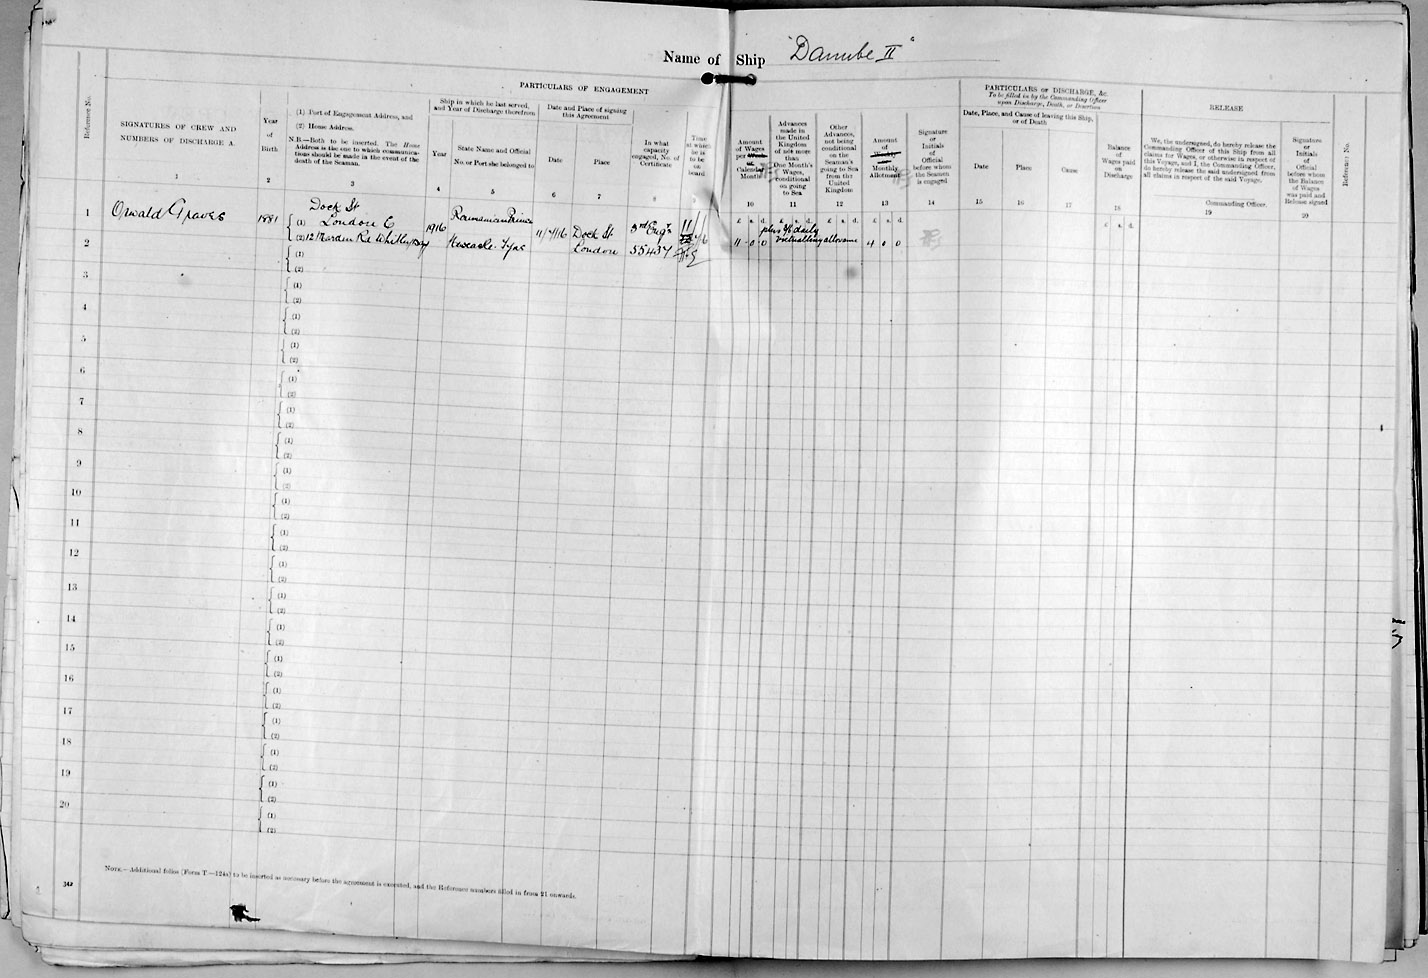 Name of Ship "Danube II"
PARTICULARS OF ENGAGEMENT
PARTICULARS OF DISCHARGE, &c.
To be filled in by the Commanding Officer
upon Discharge, Death, or Desertion
RELEASE
Reference No.
SIGNATURES OF CREW AND
NUMBERS OF DISCHARGE A.
Year
of
Birth
(1) Port of Engagement Address, and
(2) Home Address.
N.B.—Both to be inserted. The Home
Address is the one to which communica-
tions should be made in the event of the
death of the Seaman.
Ship in which he last served,
and Year of Discharge therefrom
Year
State Name and Official
No. or Port she belonged to
Date and Place of signing
this Agreement
Date
Place
In what
capacity
engaged, No. of
Certificate
Time
at which
he is
to be
on
board
Amount
of Wages
per Week
or
Calendar
Month
Advances
made in
the United
Kingdom
of not more
than
One Month's
Wages,
conditional
on going
to Sea
Other
Advances,
not being
conditional
on the
Seaman's
going to Sea
from the
United
Kingdom
Amount
of
Weekly
or
Monthly
Allotment
Signature
or
Initials
of
Official
before whom
the Seaman
is engaged
Date, Place, and Cause of leaving this Ship,
or of Death
Date
Place
Cause
Balance
of
Wages paid
on
Discharge
We, the undersigned, do hereby release the
Commanding Officer of this Ship from all
claims for Wages, or otherwise in respect of
this Voyage, and I, the Commanding Officer,
do hereby release the said undersigned from
all claims in respect of the said Voyage.
Commanding Officer.
Signature
or
Initials
of
Official
before whom
the Balance
of Wages
was paid and
Release signed
Reference No.
1 2 3 4 5 6 7 8 9 10 11 12 13 14 15 16 17 18 19 20
£ s. d. £ s. d. £ s. d. £ s. d. £ s. d.
1 Oswald Graves 1881
Dock St
(1) London E
(2) 12 Marden Rd Whitley Bay
1916 Roumanian Prince
Newcastle Tyne
11/7/16 Dock St
London
3rd Engr
55437
11 - 0 - 0
plus 3/6 daily
victualling allowance
4 0 0
2 (1)
(2)
3 (1)
(2)
4 (1)
(2)
5 (1)
(2)
6 (1)
(2)
7 (1)
(2)
8 (1)
(2)
9 (1)
(2)
10 (1)
(2)
11 (1)
(2)
12 (1)
(2)
13 (1)
(2)
14 (1)
(2)
15 (1)
(2)
16 (1)
(2)
17 (1)
(2)
18 (1)
(2)
19 (1)
(2)
20 (1)
(2)
NOTE.—Additional folios (Form T.—124a) to be inserted as necessary before the agreement is executed, and the Reference numbers filled in from 21 onwards.